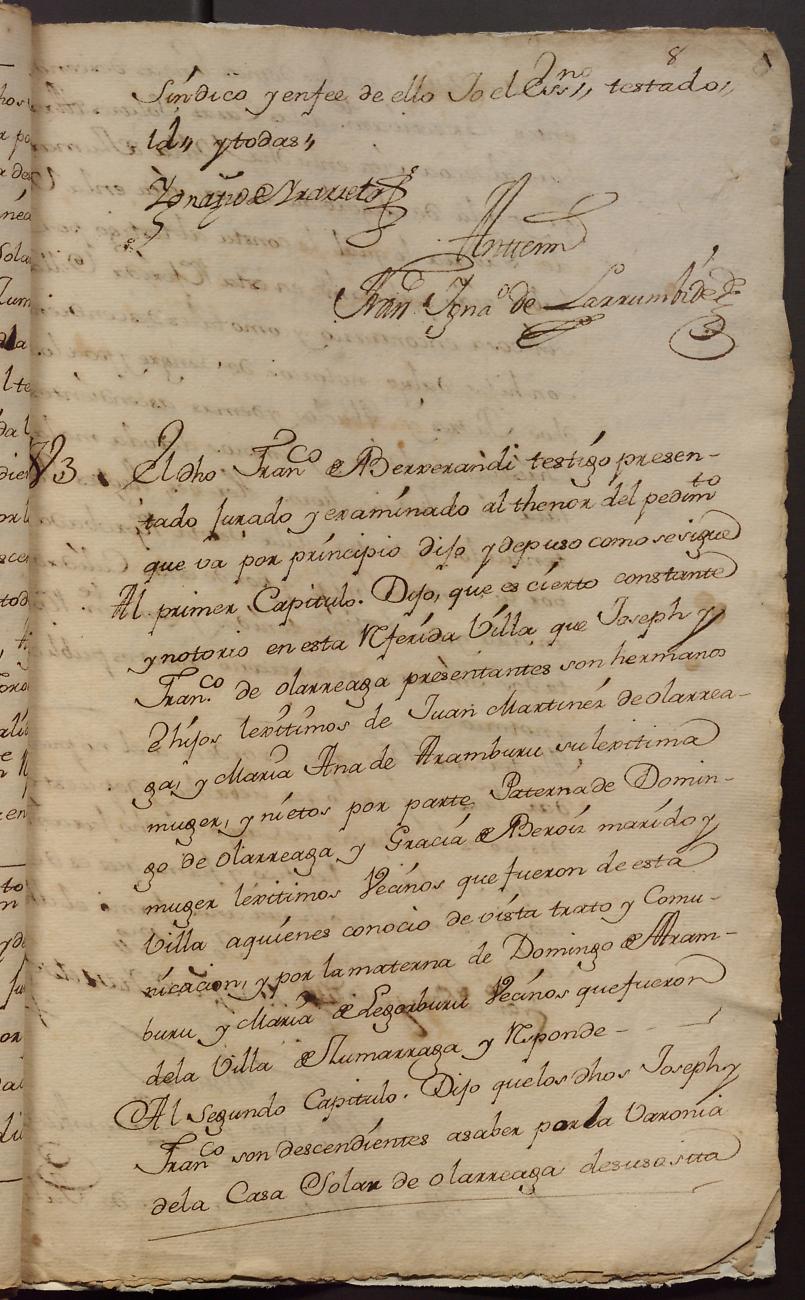 8
Síndico y enfee de ello Yo el Essno,, testado,,
id,, y todas,,
Ygnaçio de Yrarreta
Antemi
Franco Ygnao de Larrumbide
3
El dho Franco de Berverandi testigo presen-
tado Jurado y examinado al thenor del pedimto
que va por principio dijo y depuso como se sigue
Al primer Capitulo. Dijo, que es cierto constante
y notorio en esta Rferida Villa que Joseph y
Franco de olarreaga presentantes son hermanos
e hijos lexitimos de Juan Martinez de olarrea-
ga, y Maria Ana de Aramburu su lexitima
muger, y nietos por parte Paterna de Domin-
go de olarreaga y Gracia de Beroiz marido y
muger lexitimos Vecinos que fueron de esta
Villa aquienes conocio de vista trato y Comu-
nicacion, y por la materna de Domingo de Aram-
buru y Maria de Legorburu Vecinos que fueron
dela Villa de Zumarraga y Rsponde - - -
Al Segundo Capitulo. Dijo que los dhos Joseph y
Franco son descendientes asaber por la Varonia
dela Casa Solar de olarreaga desuso sita